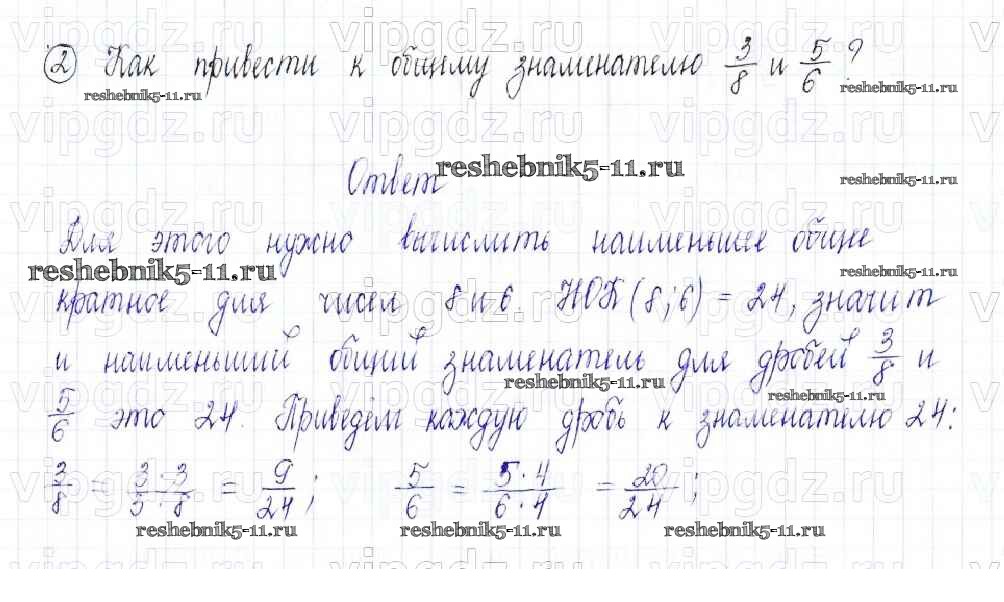 ② Как привести к общему знаменателю 3/8 и 5/6 ?
Ответ
Для этого нужно вычислить наименьшее общее
кратное для чисел 8 и 6. НОК(8;6) = 24, значит
и наименьший общий знаменатель для дробей 3/8 и
5/6 это 24. Приведём каждую дробь к знаменателю 24:
3/8 = 3·3/3·8 = 9/24; 5/6 = 5·4/6·4 = 20/24;
reshebnik5-11.ru
vipgdz.ru